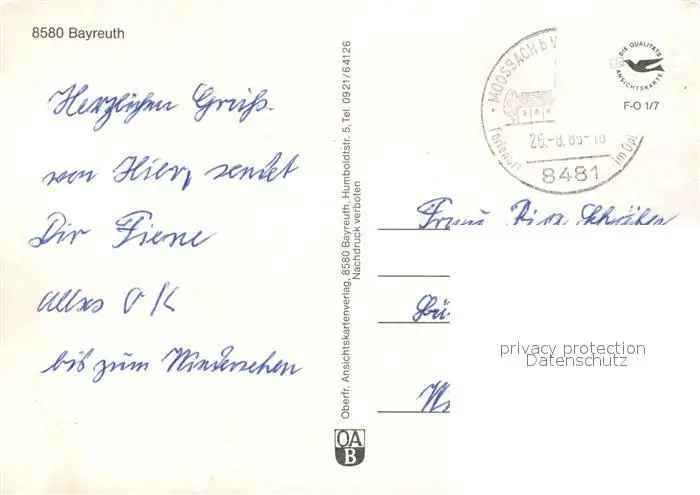 8580 Bayreuth
Herzlichen Gruß
von Hier, sendet
Dir Fiene
alles O K
bis zum Wiedersehen
Oberfr. Ansichtskartenverlag, 8580 Bayreuth, Humboldtstr. 5, Tel. 0921/64126
Nachdruck verboten
OA
B
MOOSBACH b V
Ferienort
im Opf.
26.-8.
8481
DIE QUALITÄTS
ANSICHTSKARTE
F-O 1/7
Frau
privacy protection
Datenschutz